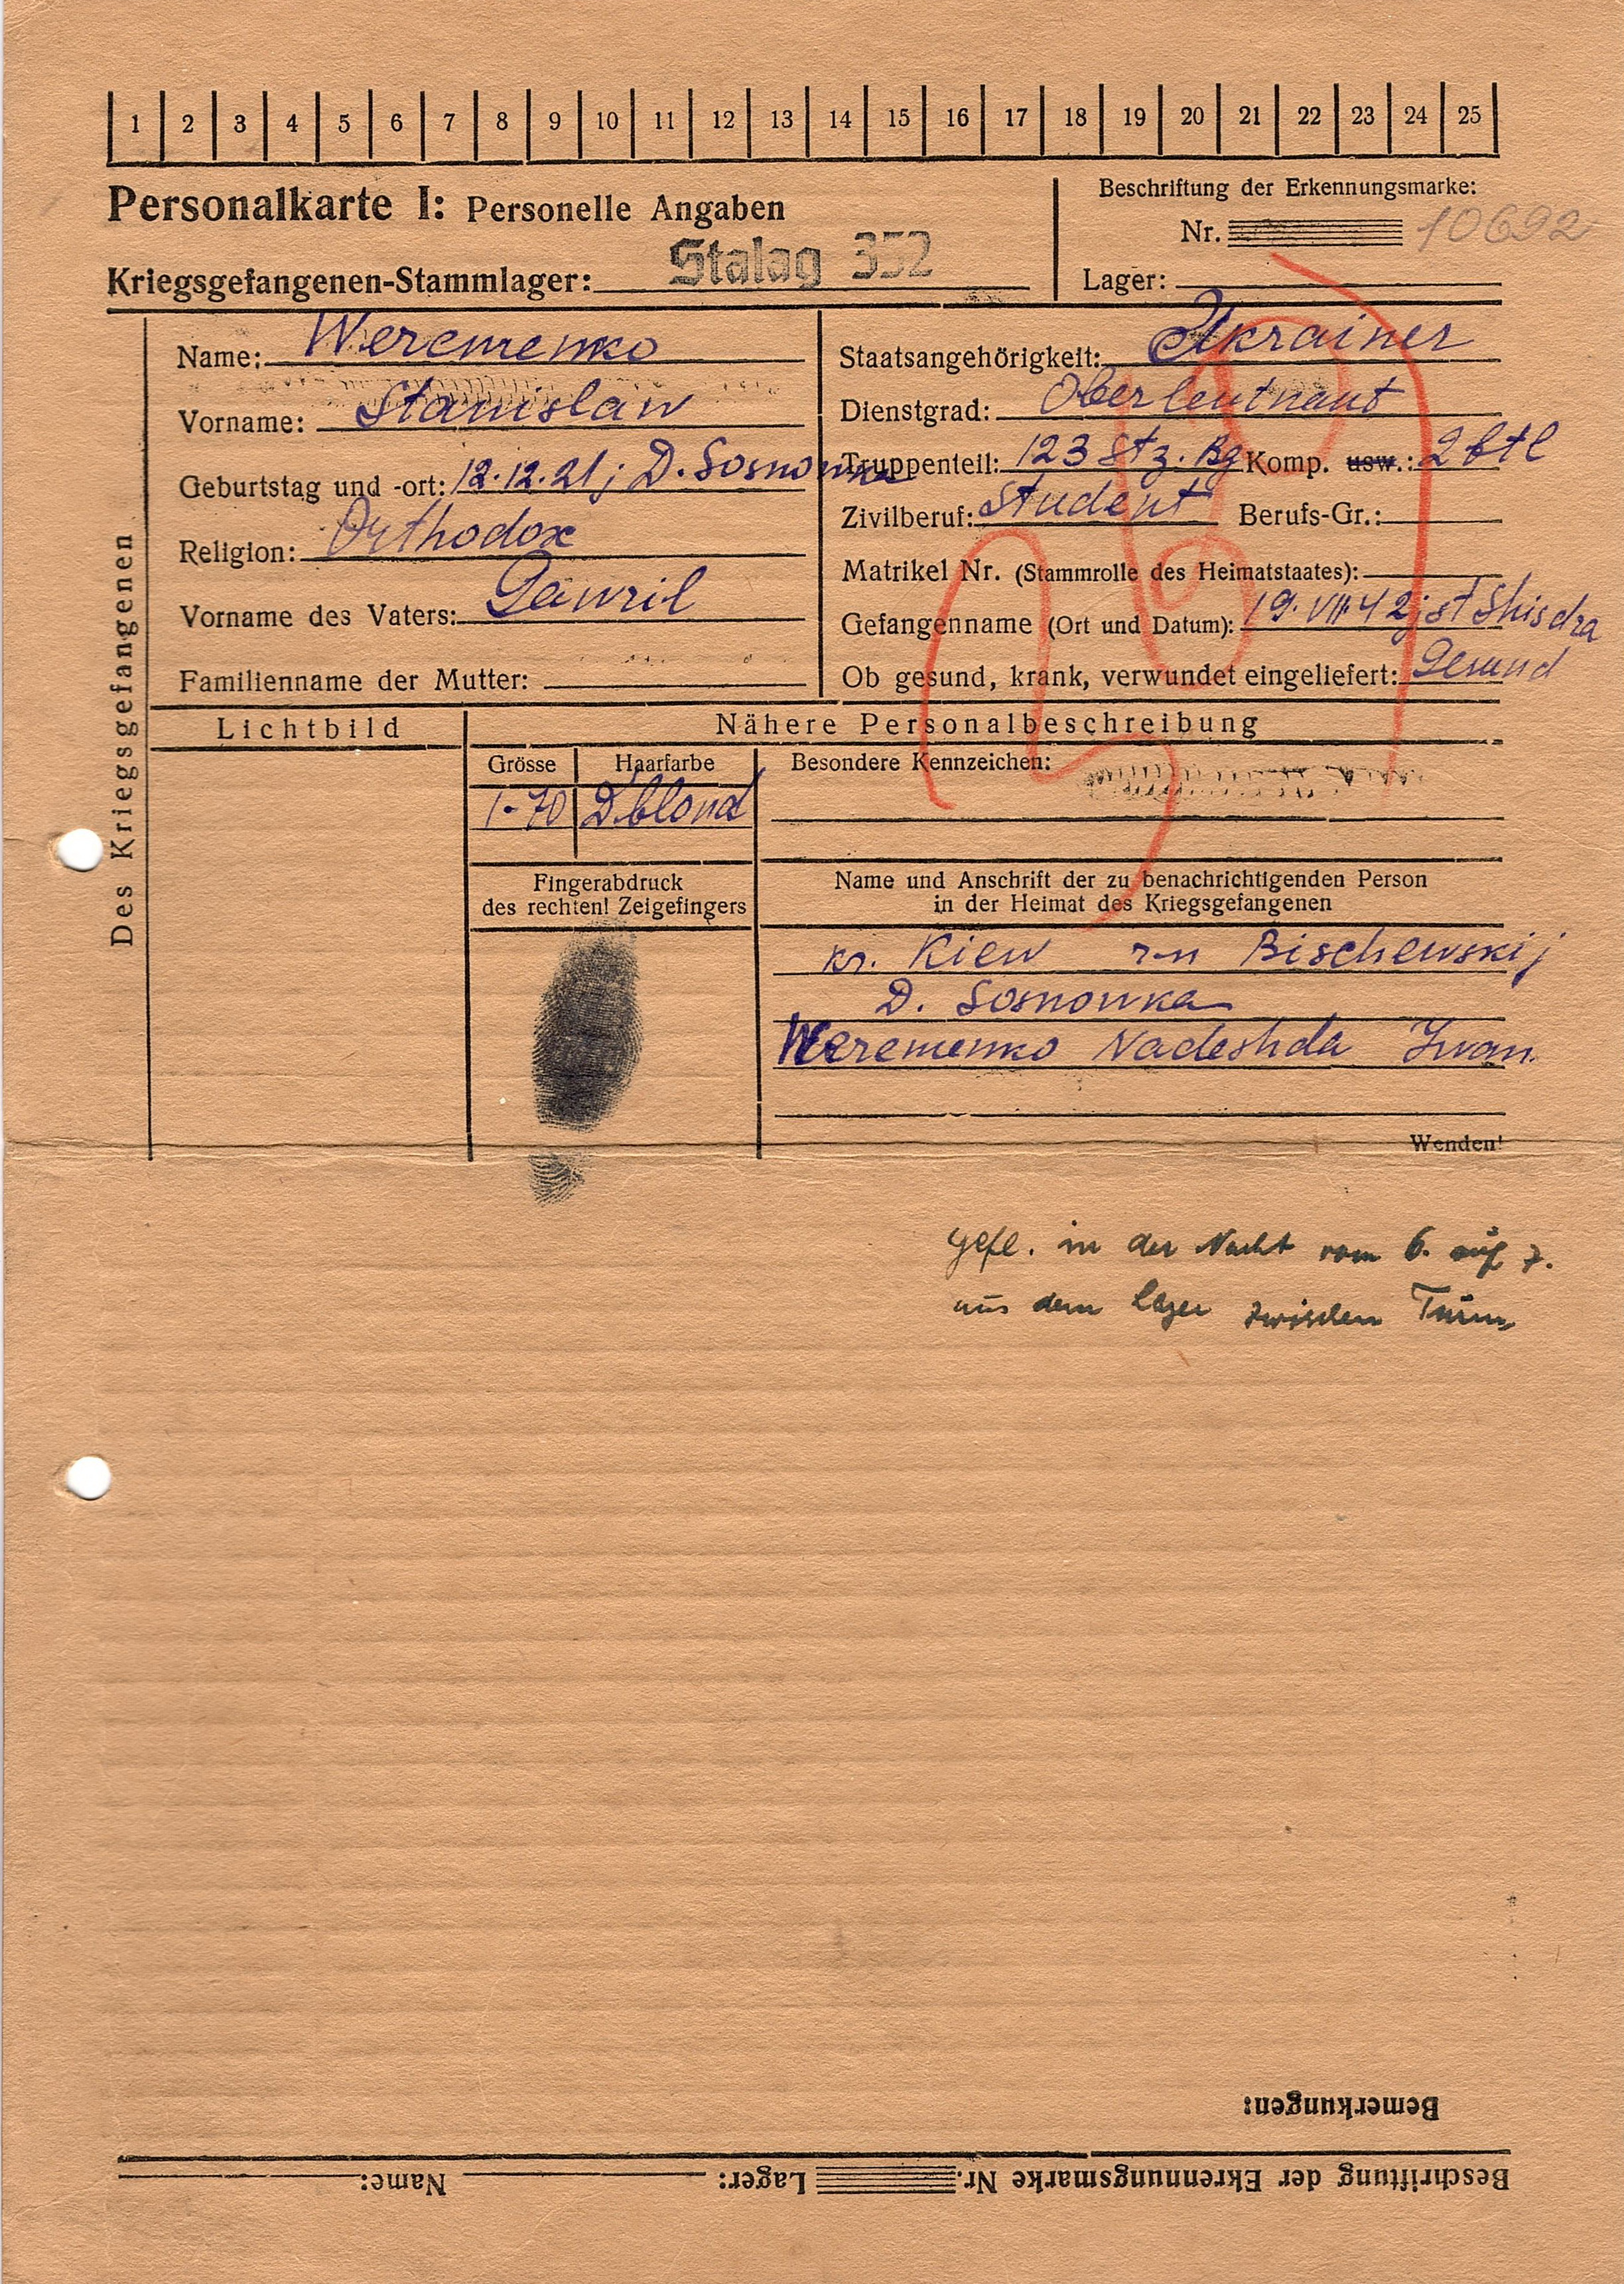 1 2 3 4 5 6 7 8 9 10 11 12 13 14 15 16 17 18 19 20 21 22 23 24 25
Personalkarte I: Personelle Angaben
Beschriftung der Erkennungsmarke:
Nr. 10692
Kriegsgefangenen-Stammlager: Stalag 352
Lager:
Des Kriegsgefangenen
Name: Weremenko
Vorname: Stanislaw
Geburtstag und -ort: 12.12.21; D. Sosnowka
Religion: Orthodox
Vorname des Vaters: Gawril
Familienname der Mutter:
Staatsangehörigkeit: Ukrainer
Dienstgrad: Oberleutnant
Truppenteil: 123 Stz. Bg Komp. usw.: 2 btl
Zivilberuf: Student Berufs-Gr.:
Matrikel Nr. (Stammrolle des Heimatstaates):
Gefangenname (Ort und Datum): 19.VIII.42; st Shisdra
Ob gesund, krank, verwundet eingeliefert: Gesund
Lichtbild
Nähere Personalbeschreibung
Grösse Haarfarbe
1-70 D.blond
Besondere Kennzeichen:
Fingerabdruck
des rechten! Zeigefingers
Name und Anschrift der zu benachrichtigenden Person
in der Heimat des Kriegsgefangenen
kr. Kiew r-n Bischewskij
D. Sosnowka
Weremenko Nadeshda Iwan.
Wenden!
gefl. in der Nacht vom 6. auf 7.
aus dem Lager zwischen Turm
Bemerkungen:
Beschriftung der Ekrennungsmarke Nr. Lager: Name: